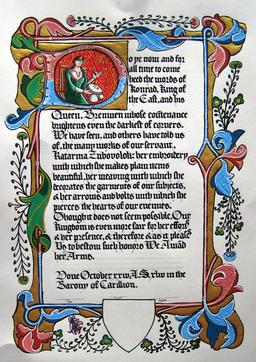 Do ye now and for
all time to come
heed the words of
Konrad, King of
the East, and his
Queen, Brennen whose coutenance
brightens even the darkest of corners.
We have seen, and others have told us
of, the many works of our servant,
Katarina Zubovolok: her embroidery
with which she makes plain items
beautiful, her weaving with which she
decorates the garments of our subjects,
& her arrows and bolts with which she
pierces the hearts of our enemies.
Though it does not seem possible, Our
Kingdom is even more fair for her effort
& her presence, & therefore & as it pleases
Us to bestow such honors We Award
her Arms.
Done October xxiv, A.S. xliv in the
Barony of Carillion.